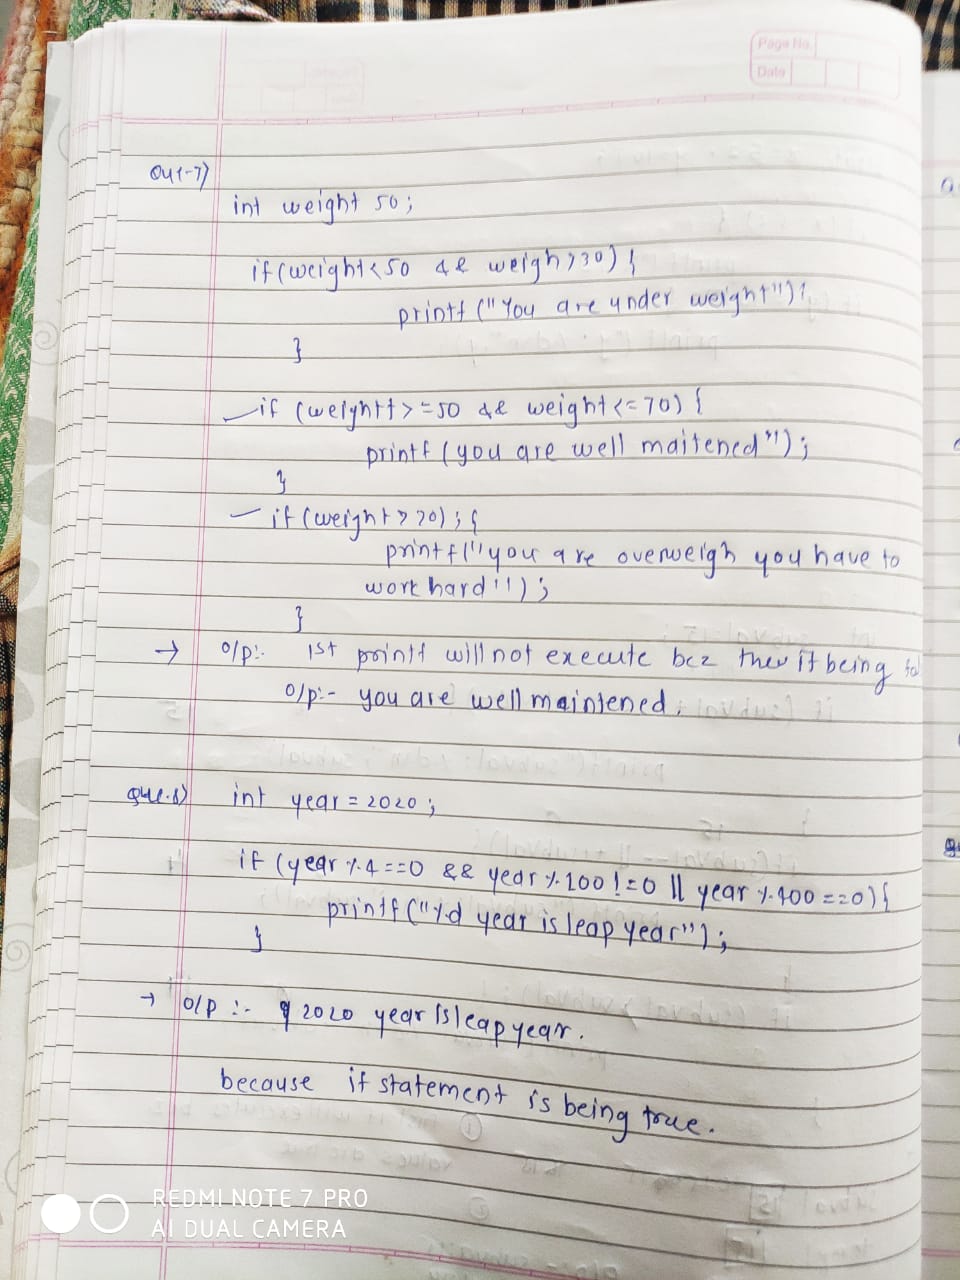 Page No.
Date
Que-7)
int weight 50;
if (weight<50 && weigh>30) {
printf ("You are under weight");
}
if (weightt>=50 && weight<=70) {
printf (you are well maitened");
}
if (weight>70) ; {
printf("you are overweigh you have to
work hard");
}
→ o/p:- 1st printf will not execute bcz if being
o/p:- you are well maintened.
Que.8) int year = 2020;
if (year %.4==0 && year %.100 !=0 || year %.400 ==0) {
printf("%d year is leap year");
}
→ o/p :- 2020 year is leap year.
because if statement is being true.
REDMI NOTE 7 PRO
AI DUAL CAMERA